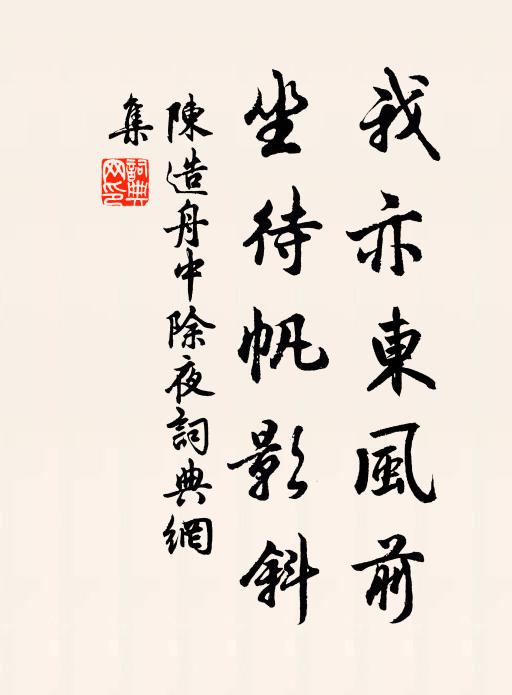 我亦東風前
坐待帆影斜
陳造舟中除夜詞典網
集
詞典
网印